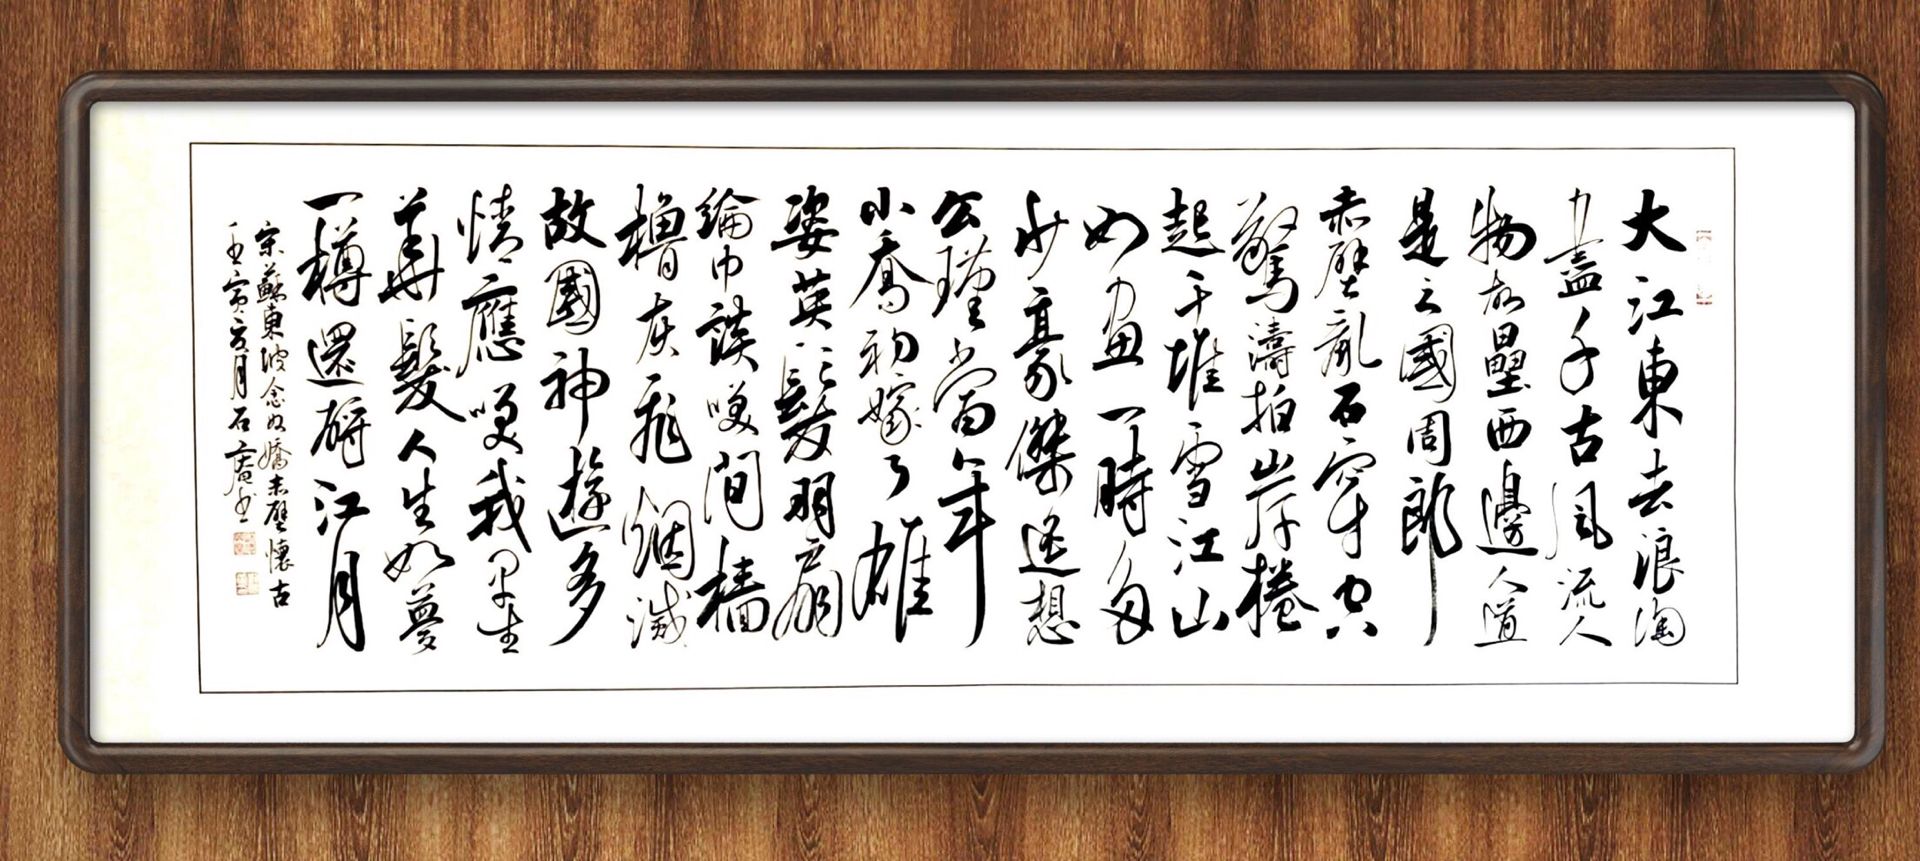 大江東去浪淘
力盡千古風流人
物故壘西邊人道
是三國周郎
赤壁亂石穿空
驚濤拍岸捲
起千堆雪江山
如畫一時多
少豪傑遙想
公瑾當年
小喬初嫁了雄
姿英發羽扇
綸巾談笑間檣
櫓灰飛烟滅
故國神遊多
情應笑我早生
華髮人生如夢
一樽還酹江月
宋蘇東坡念奴嬌赤壁懷古
壬寅
月石
書